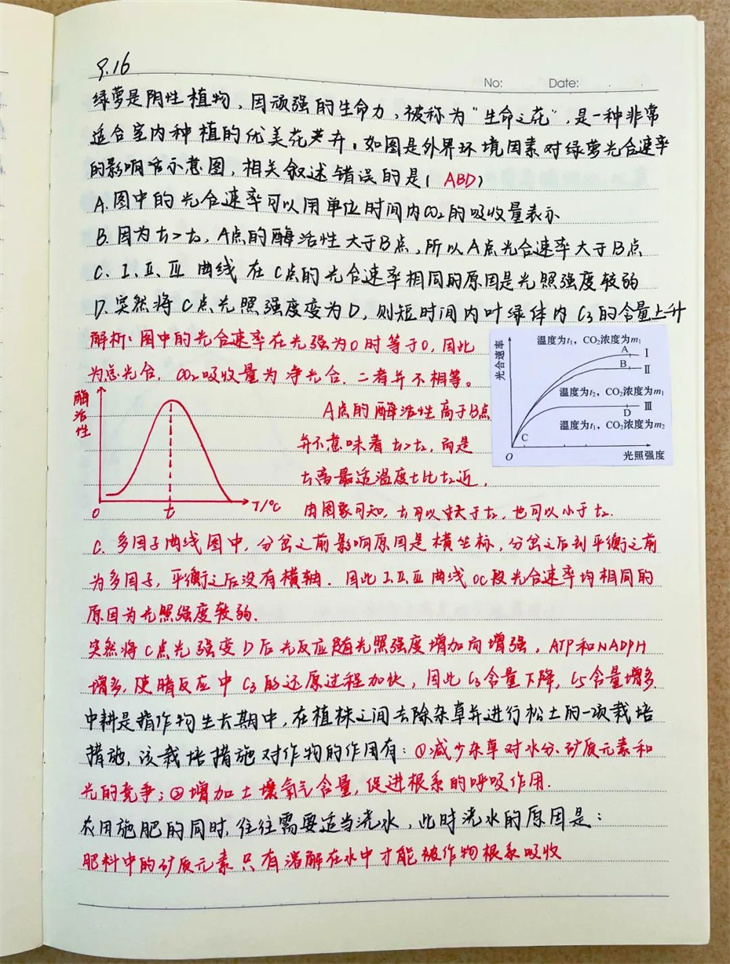 9.16
No: Date:
绿萝是阴性植物，因顽强的生命力，被称为"生命之花"，是一种非常
适合室内种植的优美花卉。如图是外界环境因素对绿萝光合速率
的影响的示意图，相关叙述错误的是( ABD )
A.图中的光合速率可以用单位时间内CO₂的吸收量表示
B.因为t₁>t₂，A点的酶活性大于B点，所以A点光合速率大于B点
C. I、II、III 曲线在C点的光合速率相同的原因是光照强度较弱
D.突然将C点光照强度变为D，则短时间内叶绿体内C₃的含量上升
解析：图中的光合速率在光强为0时等于0，因此
为总光合，CO₂吸收量为净光合，二者并不相等。
光合速率
温度为t₁，CO₂浓度为m₁
A I
B II
温度为t₂，CO₂浓度为m₁
III
D
温度为t₁，CO₂浓度为m₂
C
O 光照强度
酶活性
0 t T/℃
A点的酶活性高于B点
并不意味着t₁>t₂，而是
t₁离最适温度t比t₂近，
由图象可知，t₁可以大于t₂，也可以小于t₂.
C. 多因子曲线图中，分岔之前影响原因是横坐标，分岔之后到平衡之前
为多因子，平衡之后没有横轴．因此I、II、III曲线OC段光合速率均相同的
原因为光照强度较弱．
突然将C点光强变D后光反应随光照强度增加而增强，ATP和NADPH
增多，使暗反应中C₃的还原过程加快，因此C₃含量下降，C₅含量增多
中耕是指作物生长期中，在植株之间去除杂草并进行松土的一项栽培
措施，该栽培措施对作物的作用有：①减少杂草对水分、矿质元素和
光的竞争；②增加土壤氧气含量，促进根系的呼吸作用．
农田施肥的同时，往往需要适当浇水，此时浇水的原因是：
肥料中的矿质元素只有溶解在水中才能被作物根系吸收